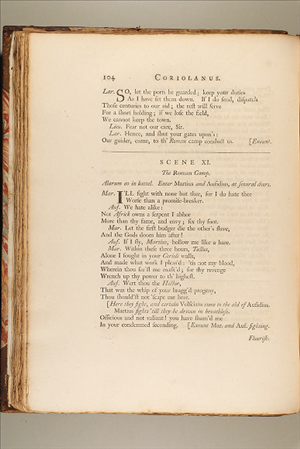 104 CORIOLANUS.
Lar. SO, let the ports be guarded; keep your duties
As I have set them down. If I do send, dispatch
Those centuries to our aid; the rest will serve
For a short holding; if we lose the field,
We cannot keep the town.
Lieu. Fear not our care, Sir.
Lar. Hence, and shut your gates upon's:
Our guider, come, to th' Roman camp conduct us. [Exeunt.
SCENE XI.
The Roman Camp.
Alarum as in battel. Enter Martius and Aufidius, at several doors.
Mar. I'LL fight with none but thee, for I do hate thee
Worse than a promise-breaker.
Auf. We hate alike:
Not Africk owns a serpent I abhor
More than thy fame, and envy; fix thy foot.
Mar. Let the first budger die the other's slave,
And the Gods doom him after!
Auf. If I fly, Martius, hollow me like a hare.
Mar. Within these three hours, Tullus,
Alone I fought in your Corioli walls,
And made what work I pleas'd: 'tis not my blood,
Wherein thou see'st me mask'd; for thy revenge
Wrench up thy power to th' highest.
Auf. Wert thou the Hector,
That was the whip of your bragg'd progeny,
Thou should'st not 'scape me here.
[Here they fight, and certain Volscians come in the aid of Aufidius.
Martius fights 'till they be driven in breathless.
Officious and not valiant! you have sham'd me
In your condemned seconding. [Exeunt Mar. and Auf. fighting.
Flourish.